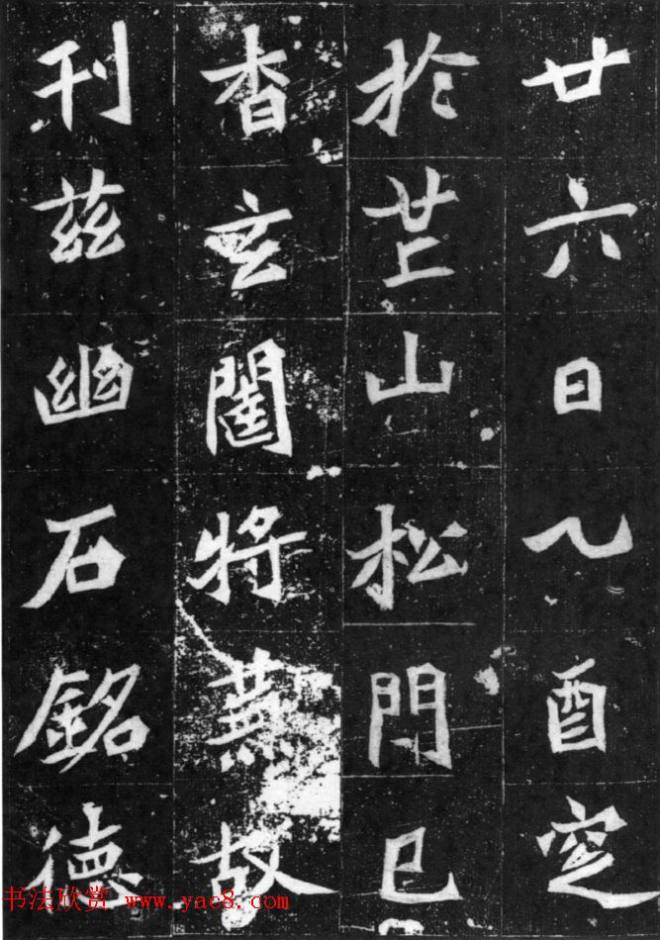 廿六日乙酉窆
於芒山松門已
杳玄閨将蕪故
刊茲幽石銘德
书法欣赏 www.yac8.com